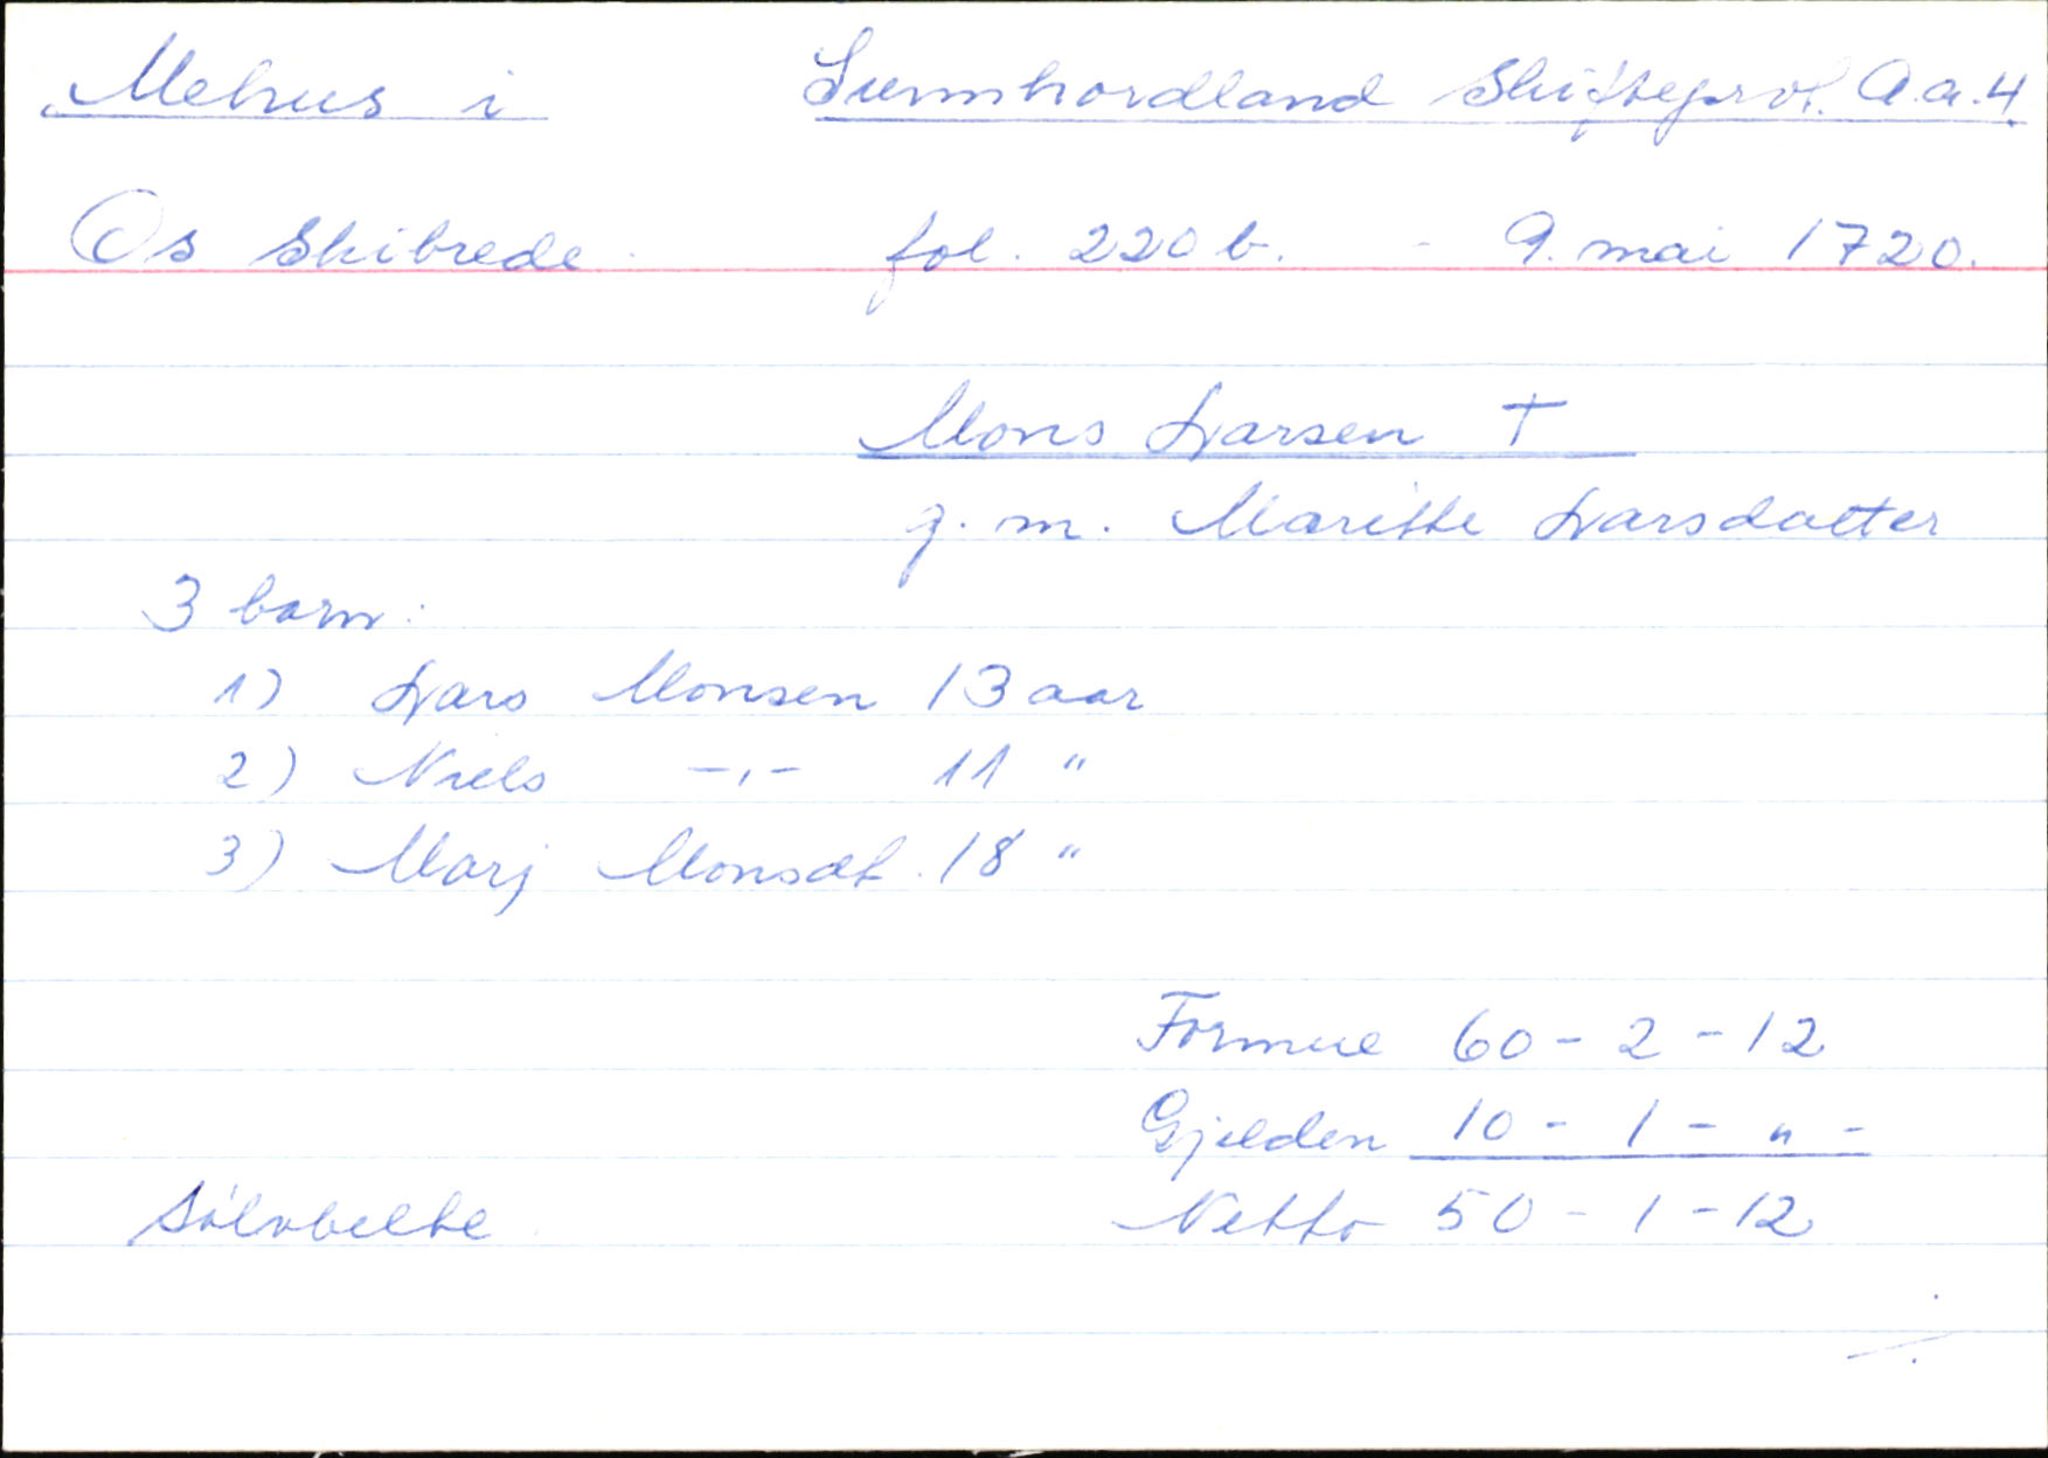 Mehus i Sunnhordland Skifteprot. A.a.4.
Os Skibrede. fol. 220 b. - 9. mai 1720.
Mons Larsen †
g. m. Maritte Larsdatter
3 barn:
1) Lars Monsen 13 aar
2) Niels -,- 11 "
3) Marj Monsdt. 18 "
Formue 60 - 2 - 12
Gjelden 10 - 1 - " -
Sølvbelte Netto 50 - 1 - 12